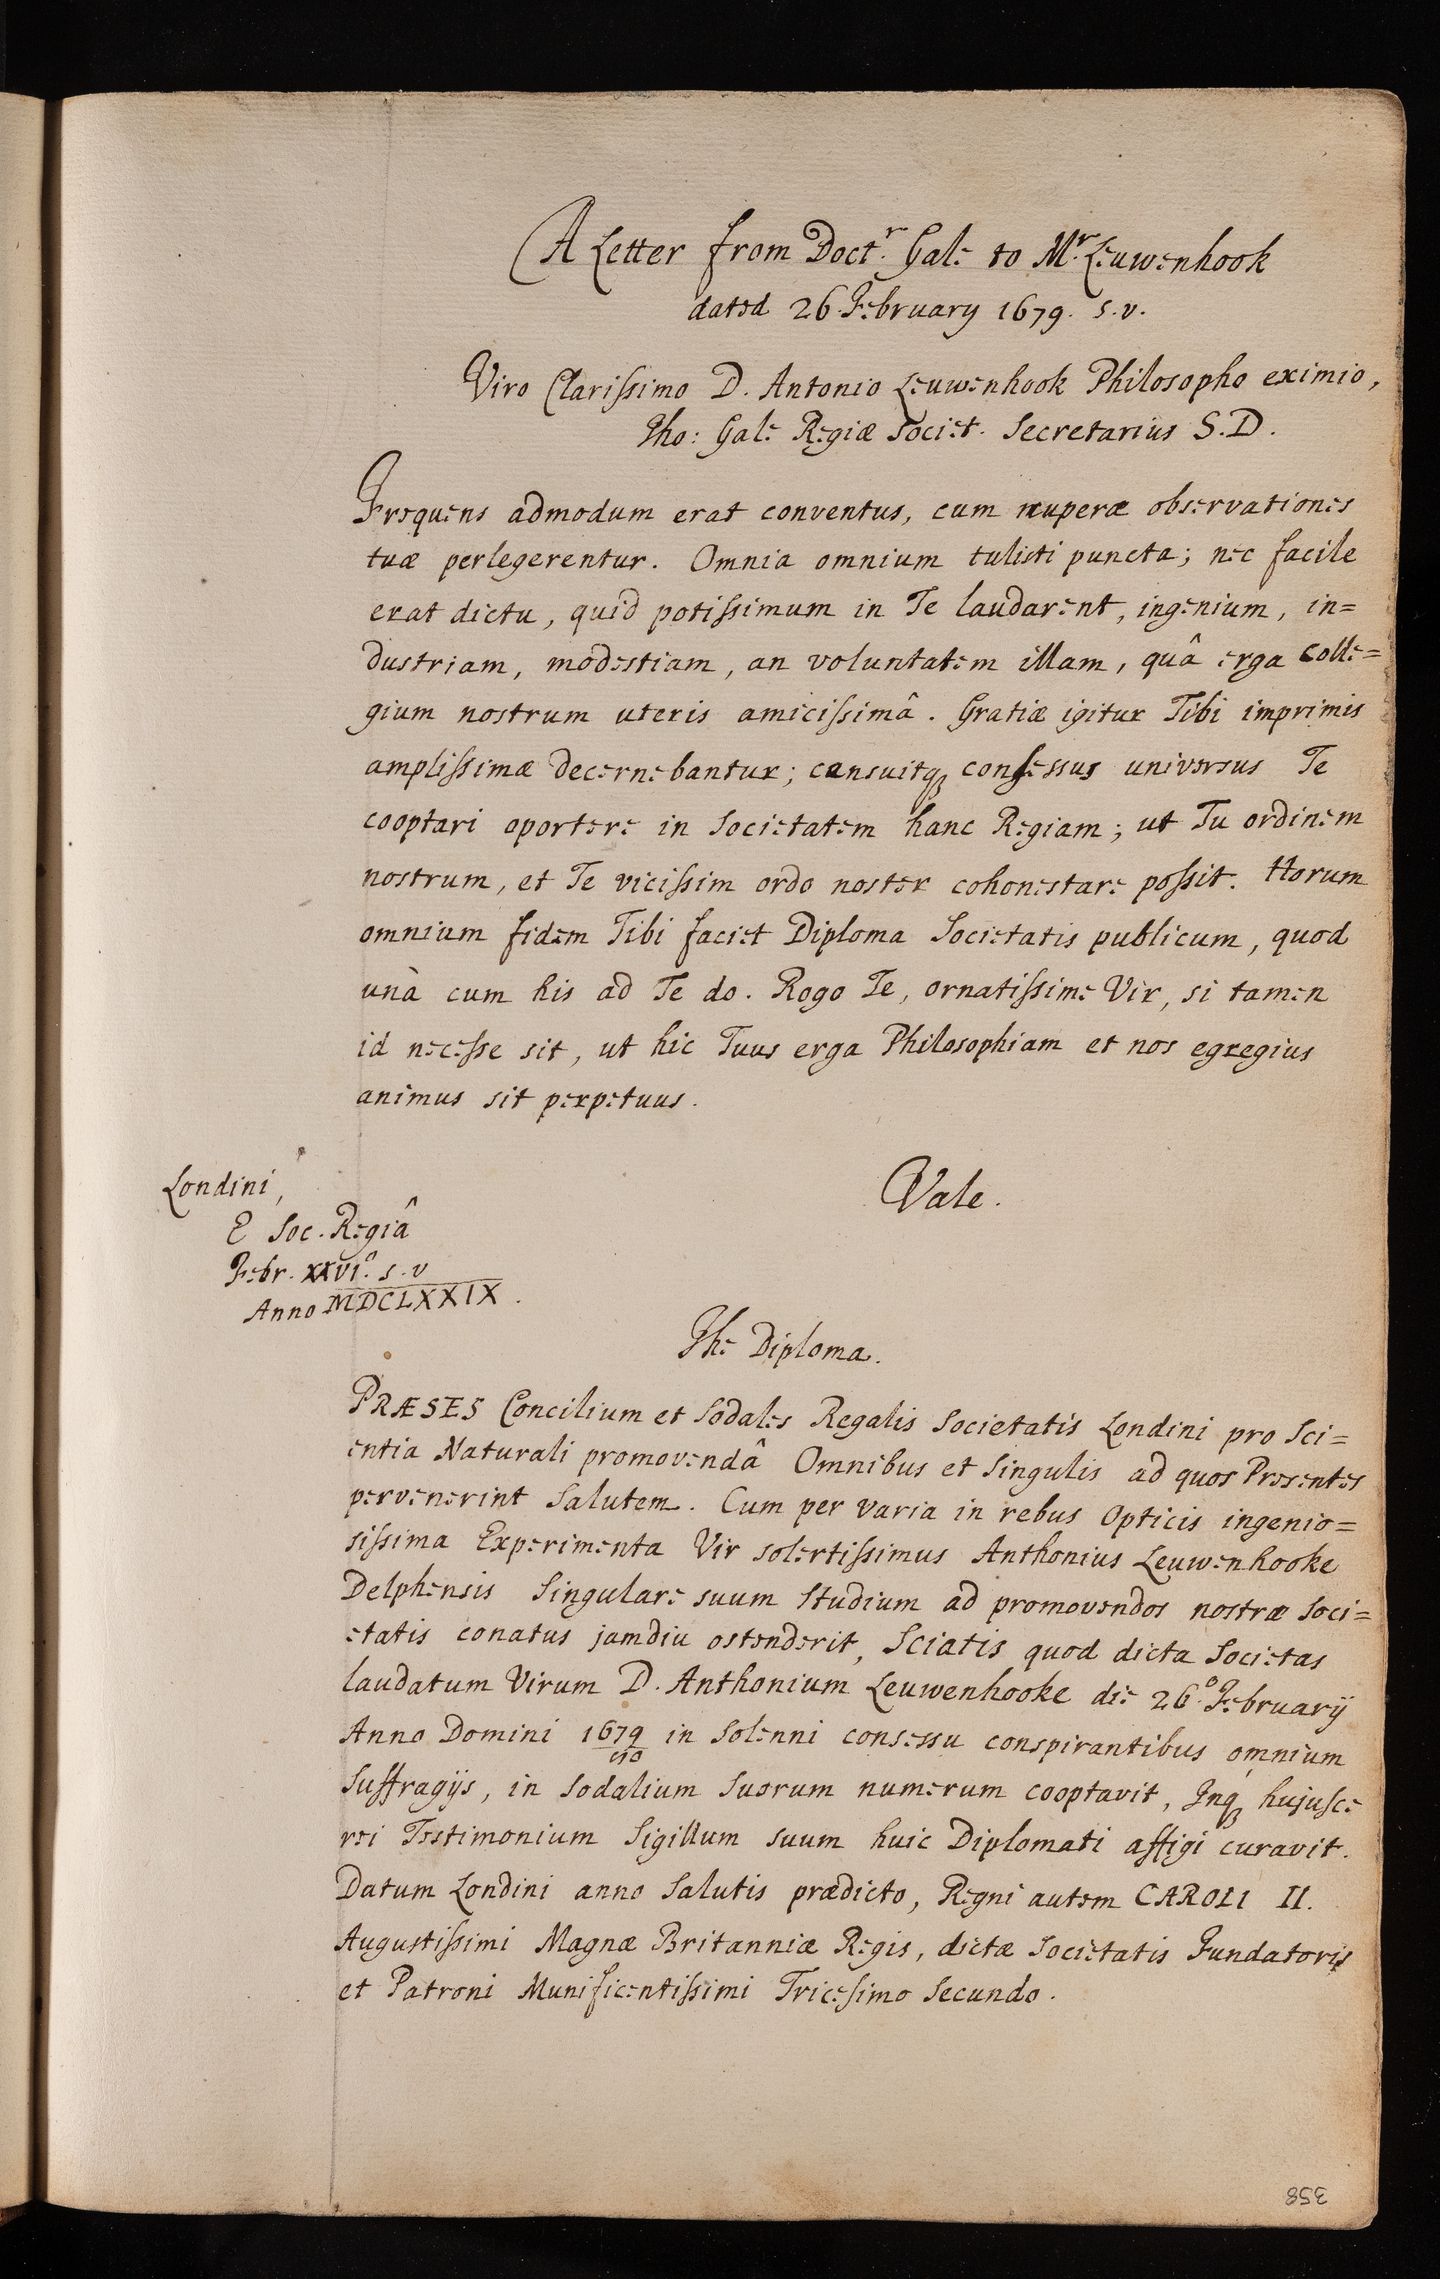 A Letter from Doctr. Gale to Mr. Leuwenhook
dated 26. February 1679. s.v.
Viro Clarissimo D. Antonio Leuwenhook Philosopho eximio,
Tho: Gale Regiæ Societ. Secretarius S.D.
Frequens admodum erat conventus, cum nuperæ observationes
tuæ perlegerentur. Omnia omnium tulisti puncta; nec facile
erat dictu, quid potissimum in Te laudarent, ingenium, in=
dustriam, modestiam, an voluntatem illam, quâ erga Colle=
gium nostrum uteris amicissimâ. Gratiæ igitur Tibi imprimis
amplissimæ decernebantur; censuitq consessus universus Te
cooptari oportere in Societatem hanc Regiam; ut Tu ordinem
nostrum, et Te vicissim ordo noster cohonestare possit. Horum
omnium fidem Tibi faciet Diploma Societatis publicum, quod
unà cum his ad Te do. Rogo Te, ornatissime Vir, si tamen
id necesse sit, ut hic Tuus erga Philosophiam et nos egregius
animus sit perpetuus.
Vale.
Londini,
E Soc. Regiâ
Febr. XXVIº. s.v
Anno MDCLXXIX.
The Diploma.
PRÆSES Concilium et Sodales Regalis Societatis Londini pro Sci=
entia Naturali promovendâ Omnibus et Singulis ad quos Presentes
pervenerint Salutem. Cum per varia in rebus Opticis ingenio=
sissima Experimenta Vir solertissimus Anthonius Leuwenhooke
Delphensis Singulare suum Studium ad promovendos nostræ Soci=
etatis conatus jamdiu ostenderit, Sciatis quod dicta Societas
laudatum Virum D. Anthonium Leuwenhooke die 26º. Februarij
Anno Domini 1679 in Solenni consessu conspirantibus omnium
Suffragijs, in Sodalium Suorum numerum cooptavit, Inq hujusce
rei Testimonium Sigillum suum huic Diplomati affigi curavit.
Datum Londini anno Salutis prædicto, Regni autem CAROLI II.
Augustissimi Magnæ Britanniæ Regis, dictæ Societatis Fundatoris
et Patroni Munificentissimi Tricesimo Secundo.
358